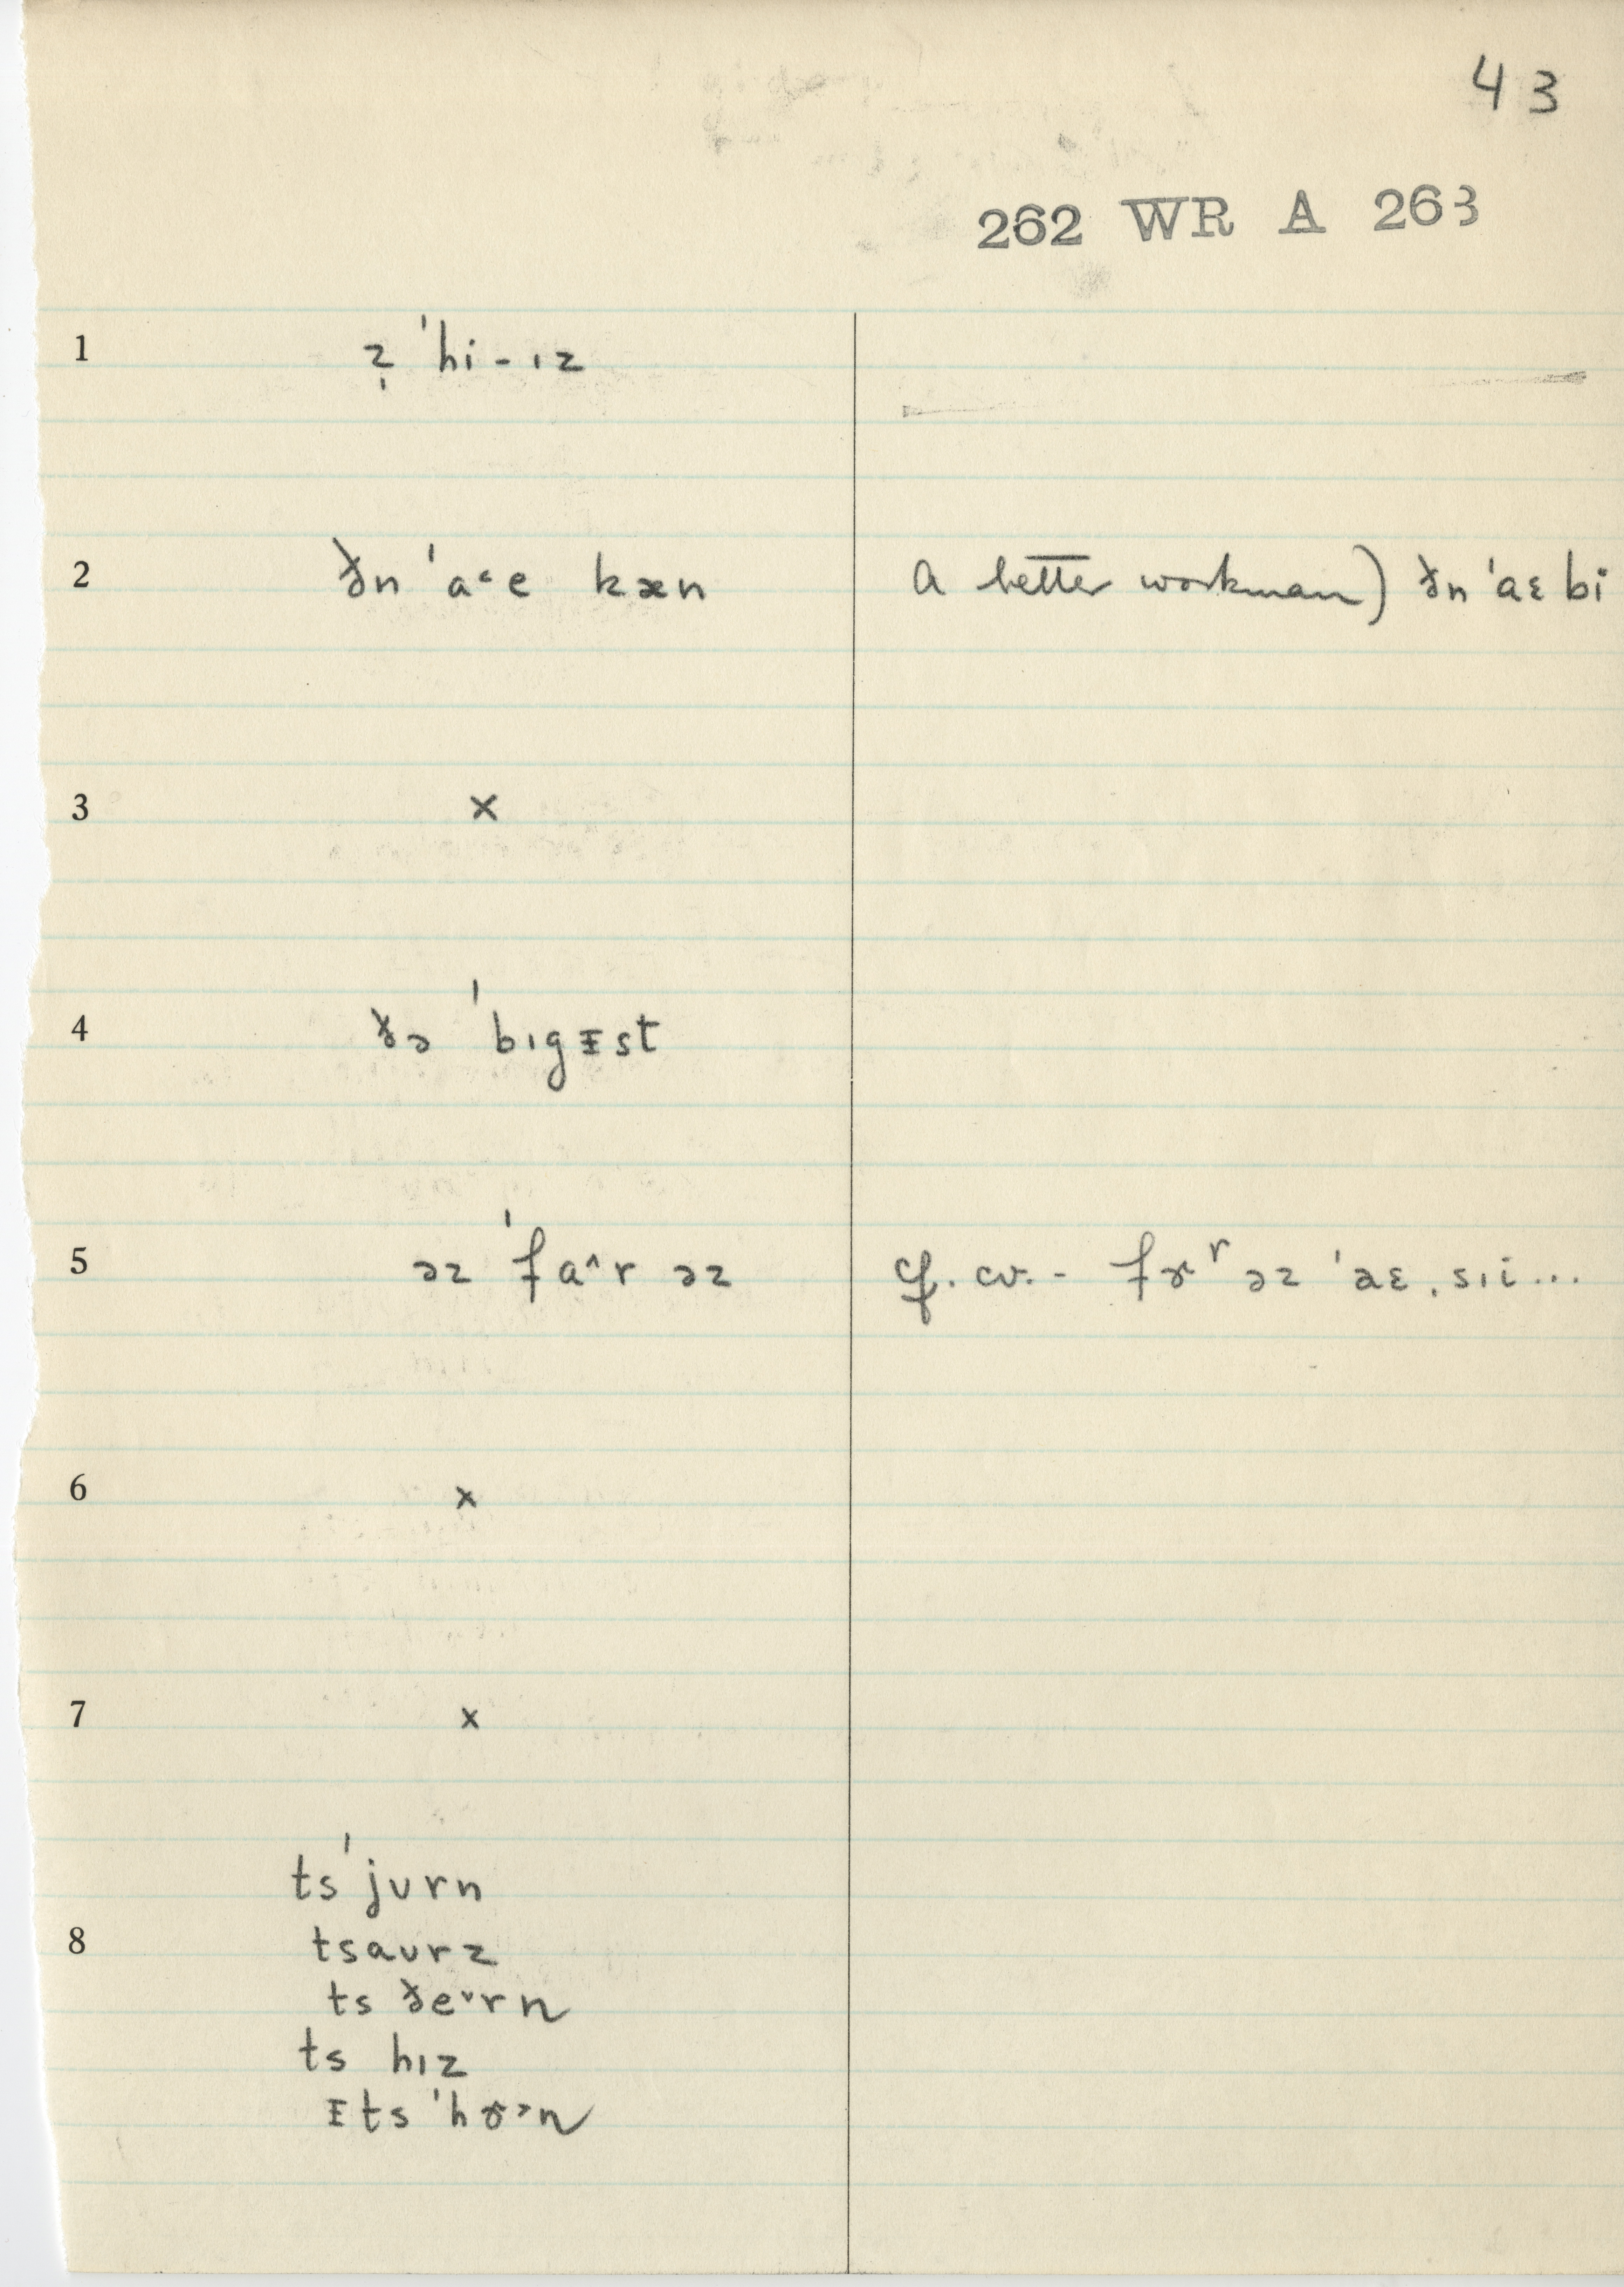 43
262 WR A 263
1 z̩ ˈhi - ɪz
2 ðn ˈa˂e kæn A better workman) ðn ˈaɛ bi
3 ×
4 ðə ˈbɪgᵻst
5 əz ˈfa˄r əz cf. cv. - fɚʳ əz ˈaɛ . sɪi...
6 ×
7 ×
ts ˈjʊrn
8 tsaʊrz
ts ðe˅rn
ts hɪz
ᵻts ˈhɚ˃n